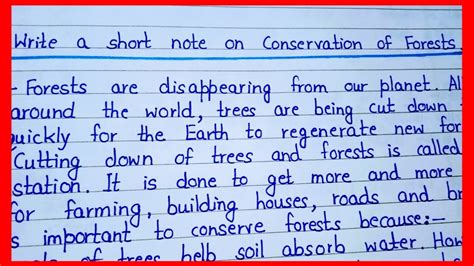 Write a short note on Conservation of Forests
- Forests are disappearing from our planet. Al
around the world, trees are being cut down
uickly for the Earth to regenerate new for
Cutting down of trees and forests is called
station. It is done to get more and more
for farming, building houses, roads and br
s important to conserve forests because:-
of trees help soil absorb water. How